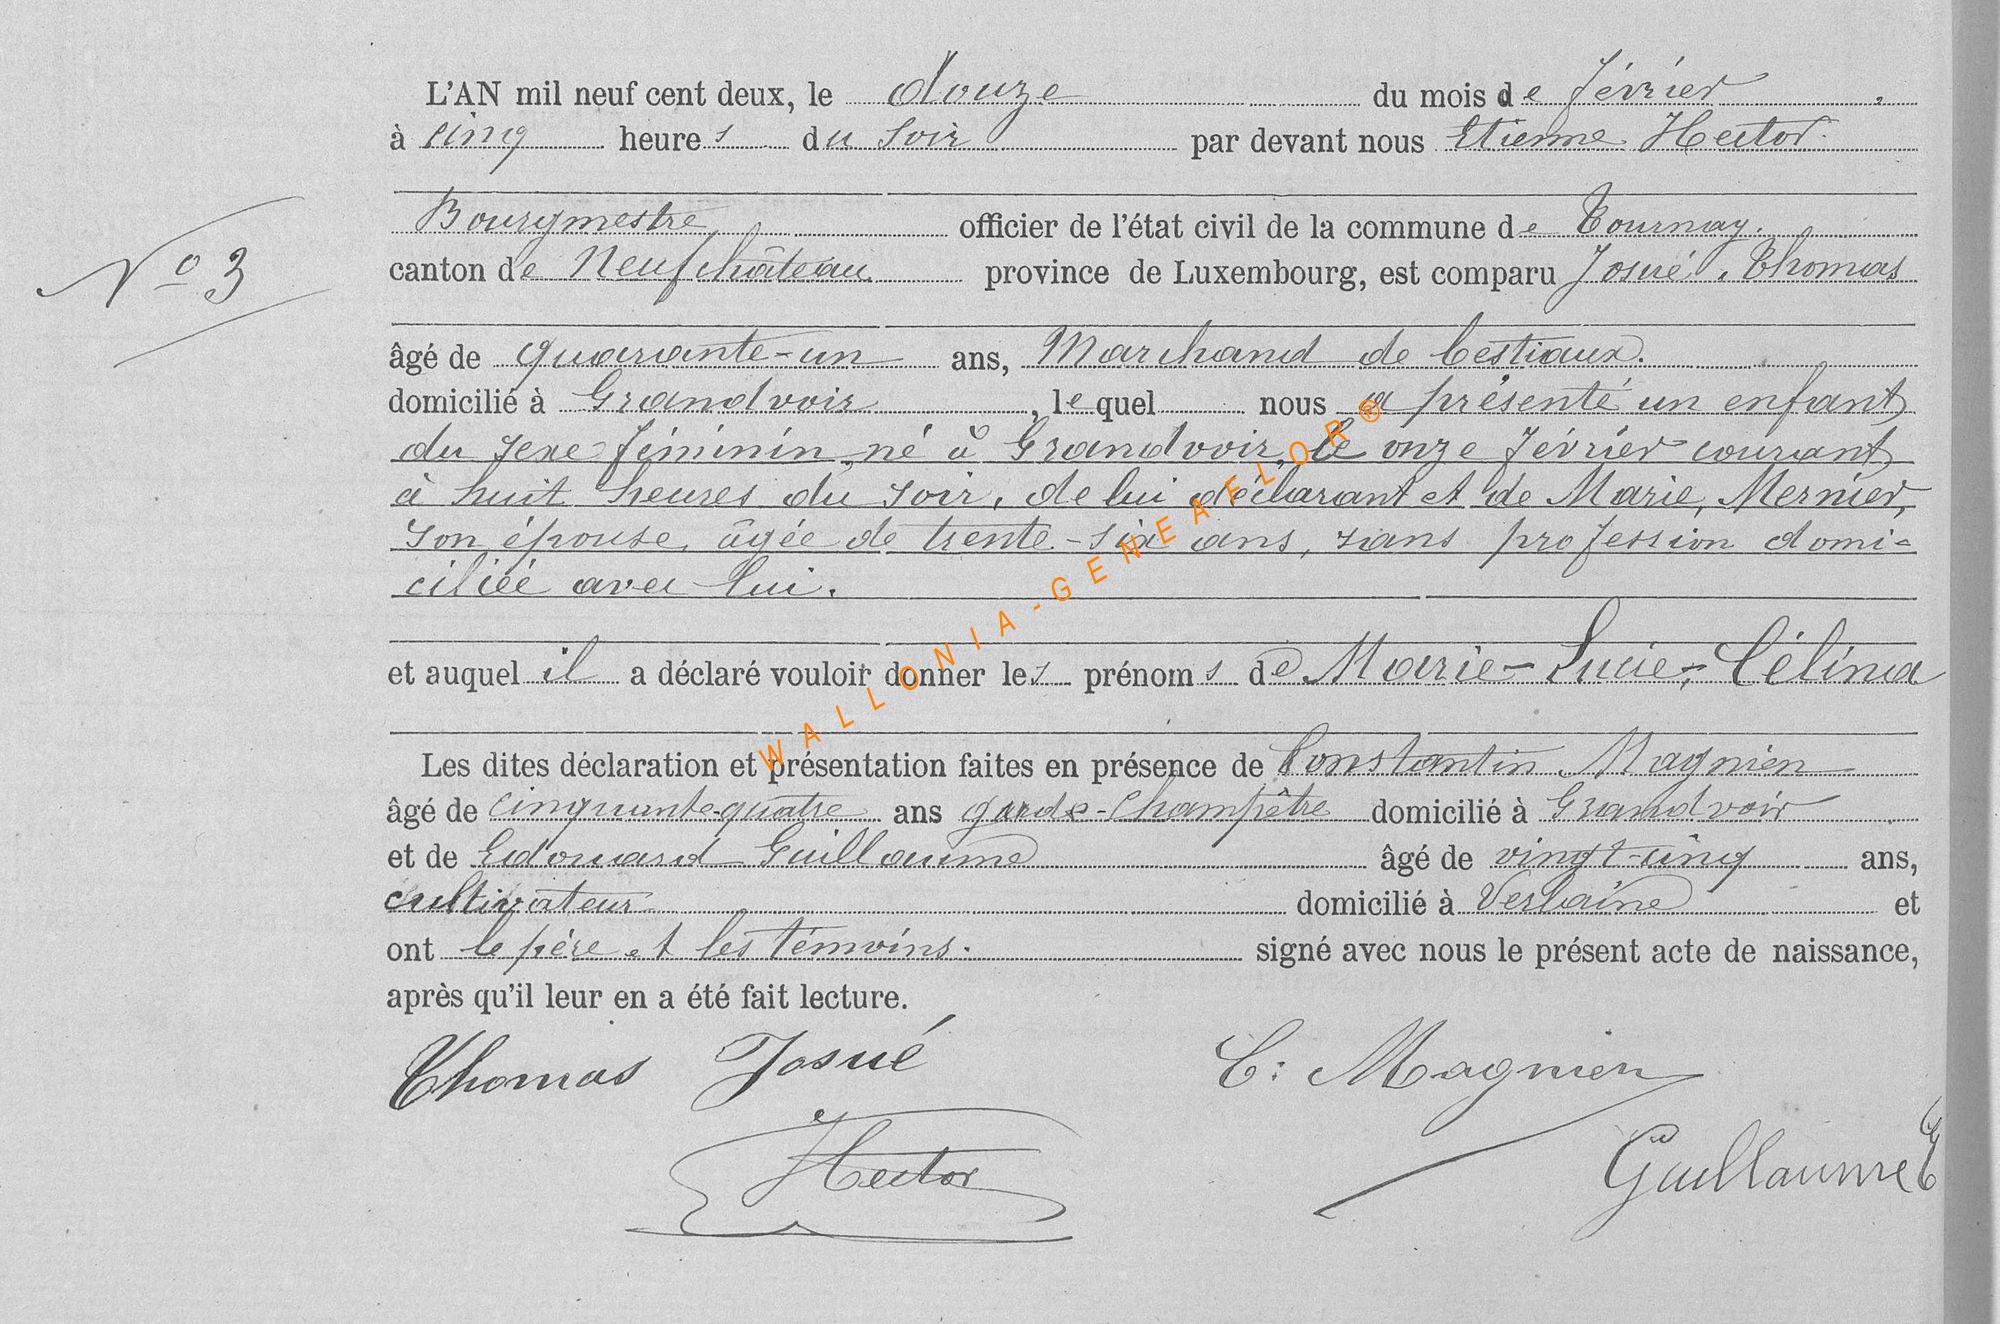 L'AN mil neuf cent deux, le douze du mois de février,
à cinq heures du soir par devant nous Etienne Hector.
Bourgmestre officier de l'état civil de la commune de Tournay.
N° 3
canton de Neufchâteau province de Luxembourg, est comparu Josué, Thomas
âgé de quarante-un ans, Marchand de bestiaux.
domicilié à Grandvoir, lequel nous a présenté un enfant
du sexe féminin né à Grandvoir, le onze février courant
à huit heures du soir, de lui déclarant et de Marie, Mernier,
son épouse, âgée de trente-six ans, sans profession domi-
ciliée avec lui.
et auquel il a déclaré vouloir donner les prénoms de Marie-Lucie-Célina
Les dites déclaration et présentation faites en présence de Constantin Magnien
âgé de cinquante-quatre ans garde-champêtre domicilié à Grandvoir
et de Edouard Guillaume âgé de vingt-cinq ans,
cultivateur domicilié à Verlaine et
ont le père et les témoins. signé avec nous le présent acte de naissance,
après qu'il leur en a été fait lecture.
Thomas Josué C: Magnien
Hector Guillaume E
WALLONIA-GENEAFLOR®